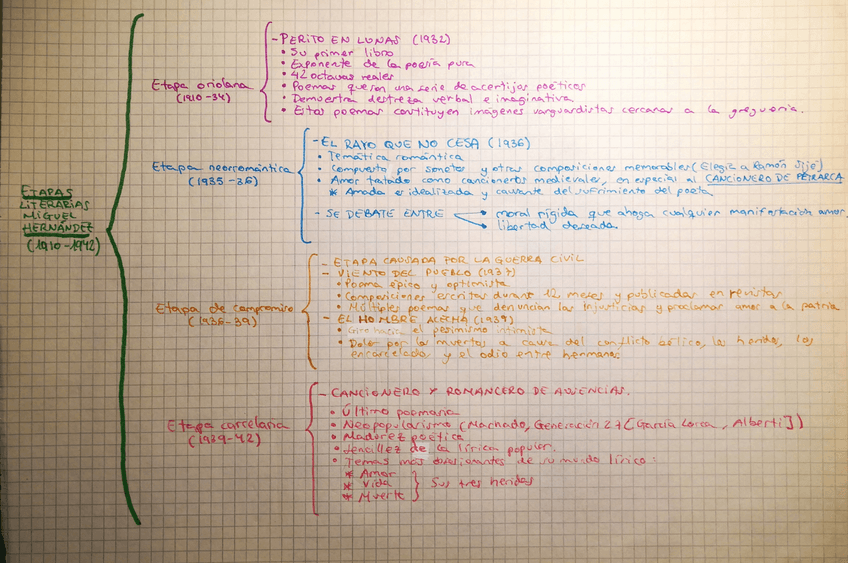 ETAPAS
LITERARIAS
MIGUEL
HERNÁNDEZ
(1910-1942)
Etapa oriolana
(1910-34)
- PERITO EN LUNAS (1932)
• Su primer libro
• Exponente de la poesía pura
• 42 octavas reales
• Poemas que son una serie de acertijos poéticos
• Demuestra destreza verbal e imaginativa
• Estos poemas constituyen imágenes vanguardistas cercanas a la greguería.
Etapa neorromántica
(1935-36)
- EL RAYO QUE NO CESA (1936)
• Temática romántica
• Compuesto por sonetos y otras composiciones memorables (Elegía a Ramón Sijé)
• Amor tratado como cancioneros medievales, en especial al CANCIONERO DE PETRARCA
* Amada es idealizada y causante del sufrimiento del poeta
- SE DEBATE ENTRE
• moral rígida que ahoga cualquier manifestación amor.
• libertad deseada
Etapa de compromiso
(1936-39)
- ETAPA CAUSADA POR LA GUERRA CIVIL
- VIENTO DEL PUEBLO (1937)
• Poema épico y optimista
• Composiciones escritas durante 12 meses y publicadas en revistas
• Múltiples poemas que denuncian las injusticias y proclaman amor a la patria
- EL HOMBRE ACECHA (1939)
• Giro hacia el pesimismo intimista
• Dolor por los muertos a causa del conflicto bélico, los heridos, los
encarcelados y el odio entre hermanos
Etapa carcelaria
(1939-42)
- CANCIONERO Y ROMANCERO DE AUSENCIAS.
• Último poemario
• Neopopularismo (Machado, Generación 27 [García Lorca, Alberti])
• Madurez poética
• Sencillez de la lírica popular.
• Temas más de su mundo lírico:
* Amor
* Vida
* Muerte
Sus tres heridas